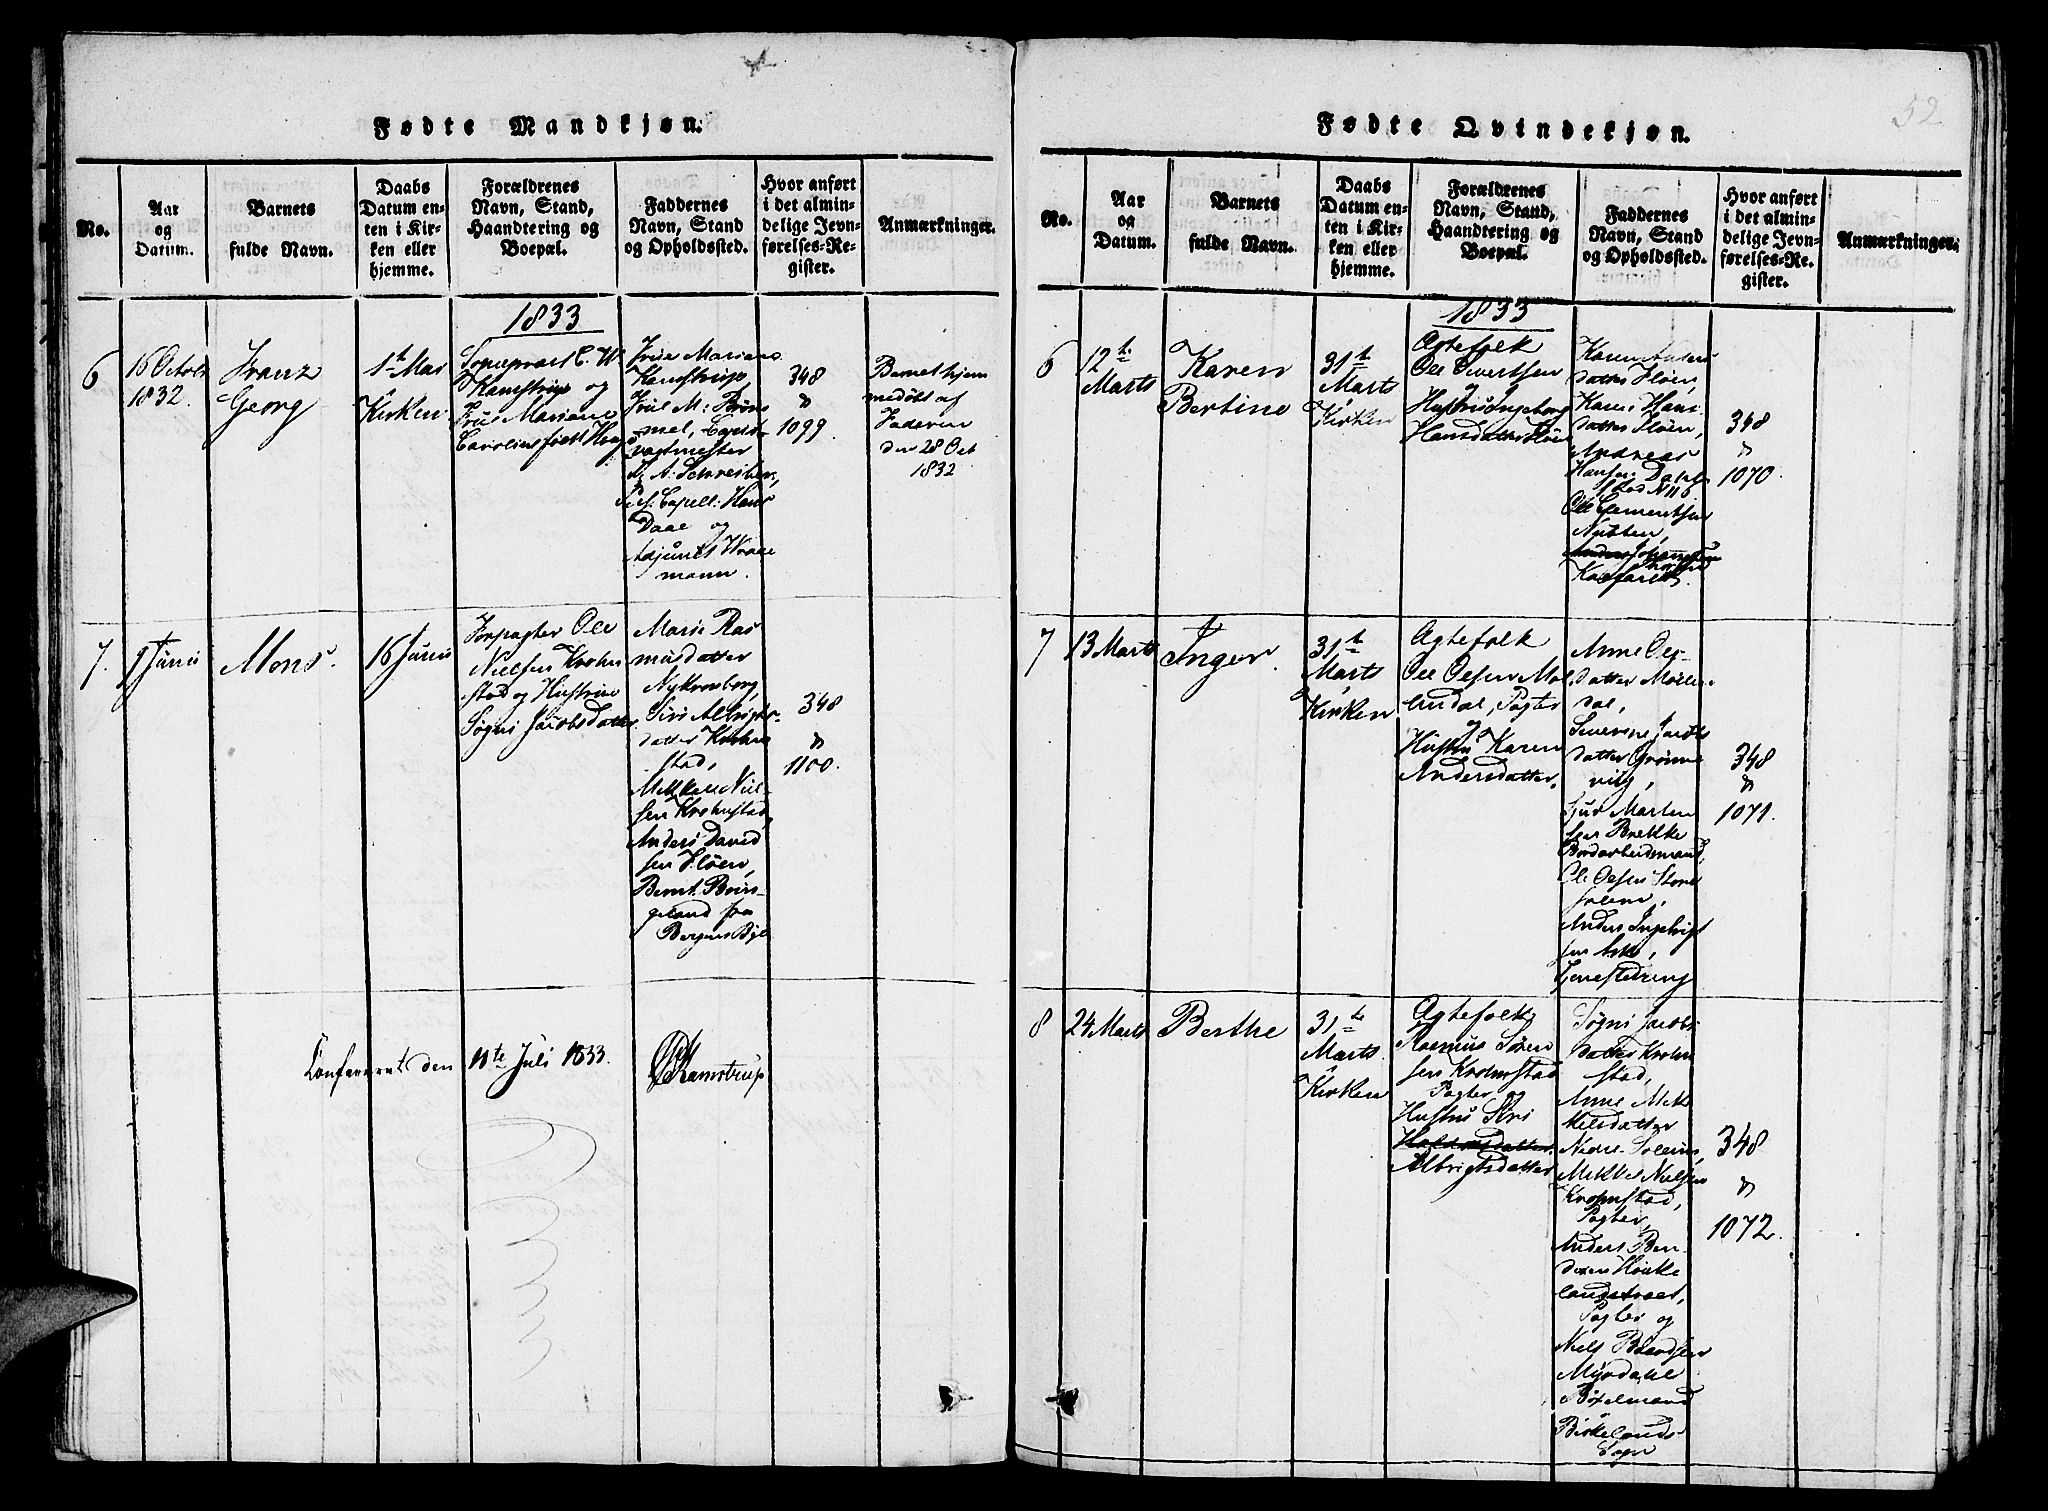 52
Fødte Mandkjøn.
No.
Aar
og
Datum.
Barnets
fulde Navn.
Daabs
Datum en-
ten i Kir-
ken eller
hjemme.
Forældrenes
Navn, Stand,
Haandtering og
Boepæl.
Faddernes
Navn, Stand
og Opholdssted.
Hvor anført
i det almin-
delige Jevn-
førelses-Re-
gister.
Anmærkninger.
1833
6
16 Octobr
1832.
Franz
Georg
1ste Mai
Kirken
Sognepræst C. W.
Kamstrup og
Frue Mariane
Caroline født
Frue Mariane
Kamstrup,
M:
vagtmester
A: Schreiber,
Capell: Hans
Daae og
Adjunct
mann.
348
&
1099.
Barnet hjem
medøbt af
Faderen
den 28 Oct
1832
7.
Junii
Mons.
16 Junii
Forpagter Ole
Nielsen Krohn
stad og Hustrue
Søgni Jacobsdatter
Marie Ras
musdatter
Nykronborg,
Siri Albrigts-
datter Krohn
stad,
Mikkel Niel
sen Krohnstad,
Anders David
sen Fløen,
Bernt
fra
Bergens Bye
348
&
1100.
Confereret den 11te Juli 1833.
Kamstrup
Fødte Qvindekjøn.
No.
Aar
og
Datum.
Barnets
fulde Navn.
Daabs
Datum en-
ten i Kir-
ken eller
hjemme.
Forældrenes
Navn, Stand,
Haandtering og
Boepæl.
Faddernes
Navn, Stand
og Opholdssted.
Hvor anført
i det almin-
delige Jevn-
førelses-Re-
gister.
Anmærkninger.
1833
6
12te
Marts
Karen
Bertine
31te
Marts
Kirken
Ægtefolk
Ole Sivertsen
Hustru Ingeborg
Hansdatter Fløen
Karen Anders
datter Fløen,
Karen Hans
datter Fløen,
Andreas
Hansen
stad N 116
Ole Clementsen
348
&
1070.
7
13 Marts
Inger.
31te
Marts
Kirken
Ægtefolk
Ole Olsen Møl
lendal, Pagter
og
Hustru Karen
Andersdatter.
Anne Ols-
datter Møllen
dal,
Severine Jacobs
datter Grønne
vig,
Sjur Marten
sen Brekke
Bordarbeidsmand,
Ole Olsen Store
Anders Ingebrigt
sen Ask,
Tjenestedreng
348
&
1071.
8
24 Marts
Berthe
31te
Marts.
Kirken
Ægtefolk
Rasmus Søren
sen Krohnstad
Pagter og
Hustru Siri
Albrigtsdatter
Søgni Jacobs
datter Krohn
stad,
Anne Mette
Nielsdatter
Nedre Solem,
Mikkel Nielsen
Krohnstad,
Pagter,
Anders Ben
landstræet,
Pagter og
Niels Baardsen
Myrdahl
Birkelands
Sogn
348
&
1072.